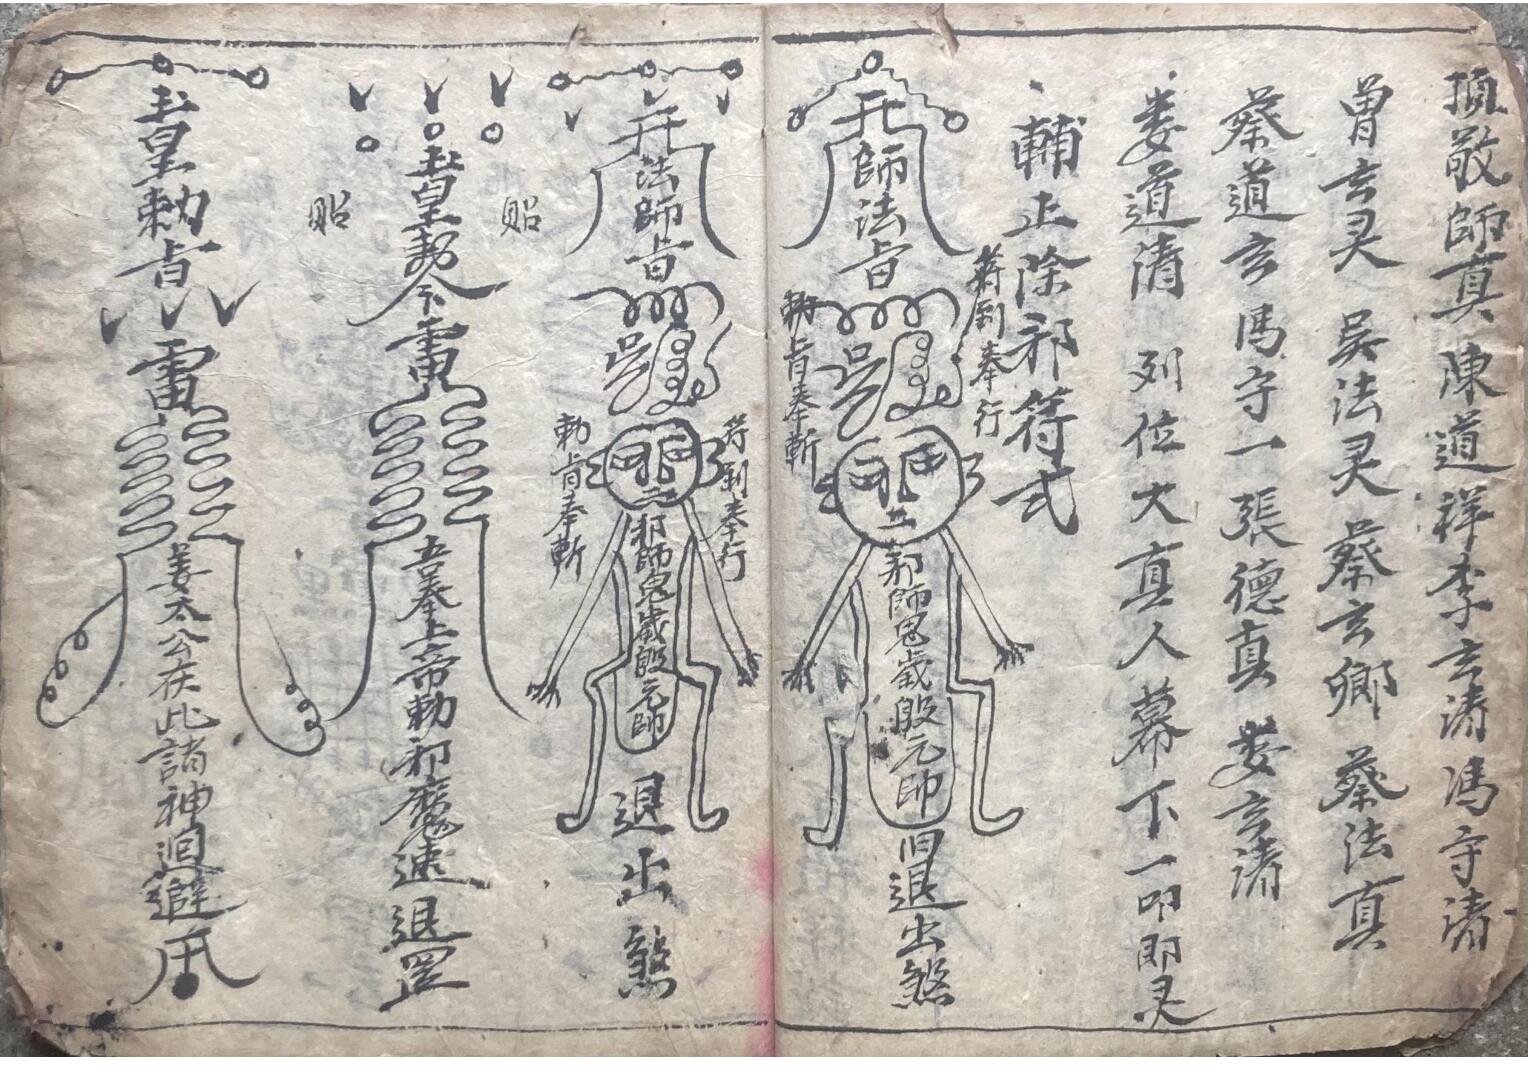 頂敬師真 陳道祥 李玄清 馮守清
曾玄灵 吳法灵 蔡玄鄉 蔡法真
蔡道玄 馮守一 張德真 娄玄清
娄道清 列位大真人 幕下一叩即灵
輔正除邪符式
師法旨
符到奉行
勅旨奉斬
邪師鬼歲殷元帅
退出煞
法師旨
符到奉行
勅旨奉斬
邪師鬼歲殷元帅
退出煞
貼
玉皇勅令下雷
貼
吾奉上帝勅邪魔速退罡
玉皇勅旨
雷
姜太公在此諸神迴避